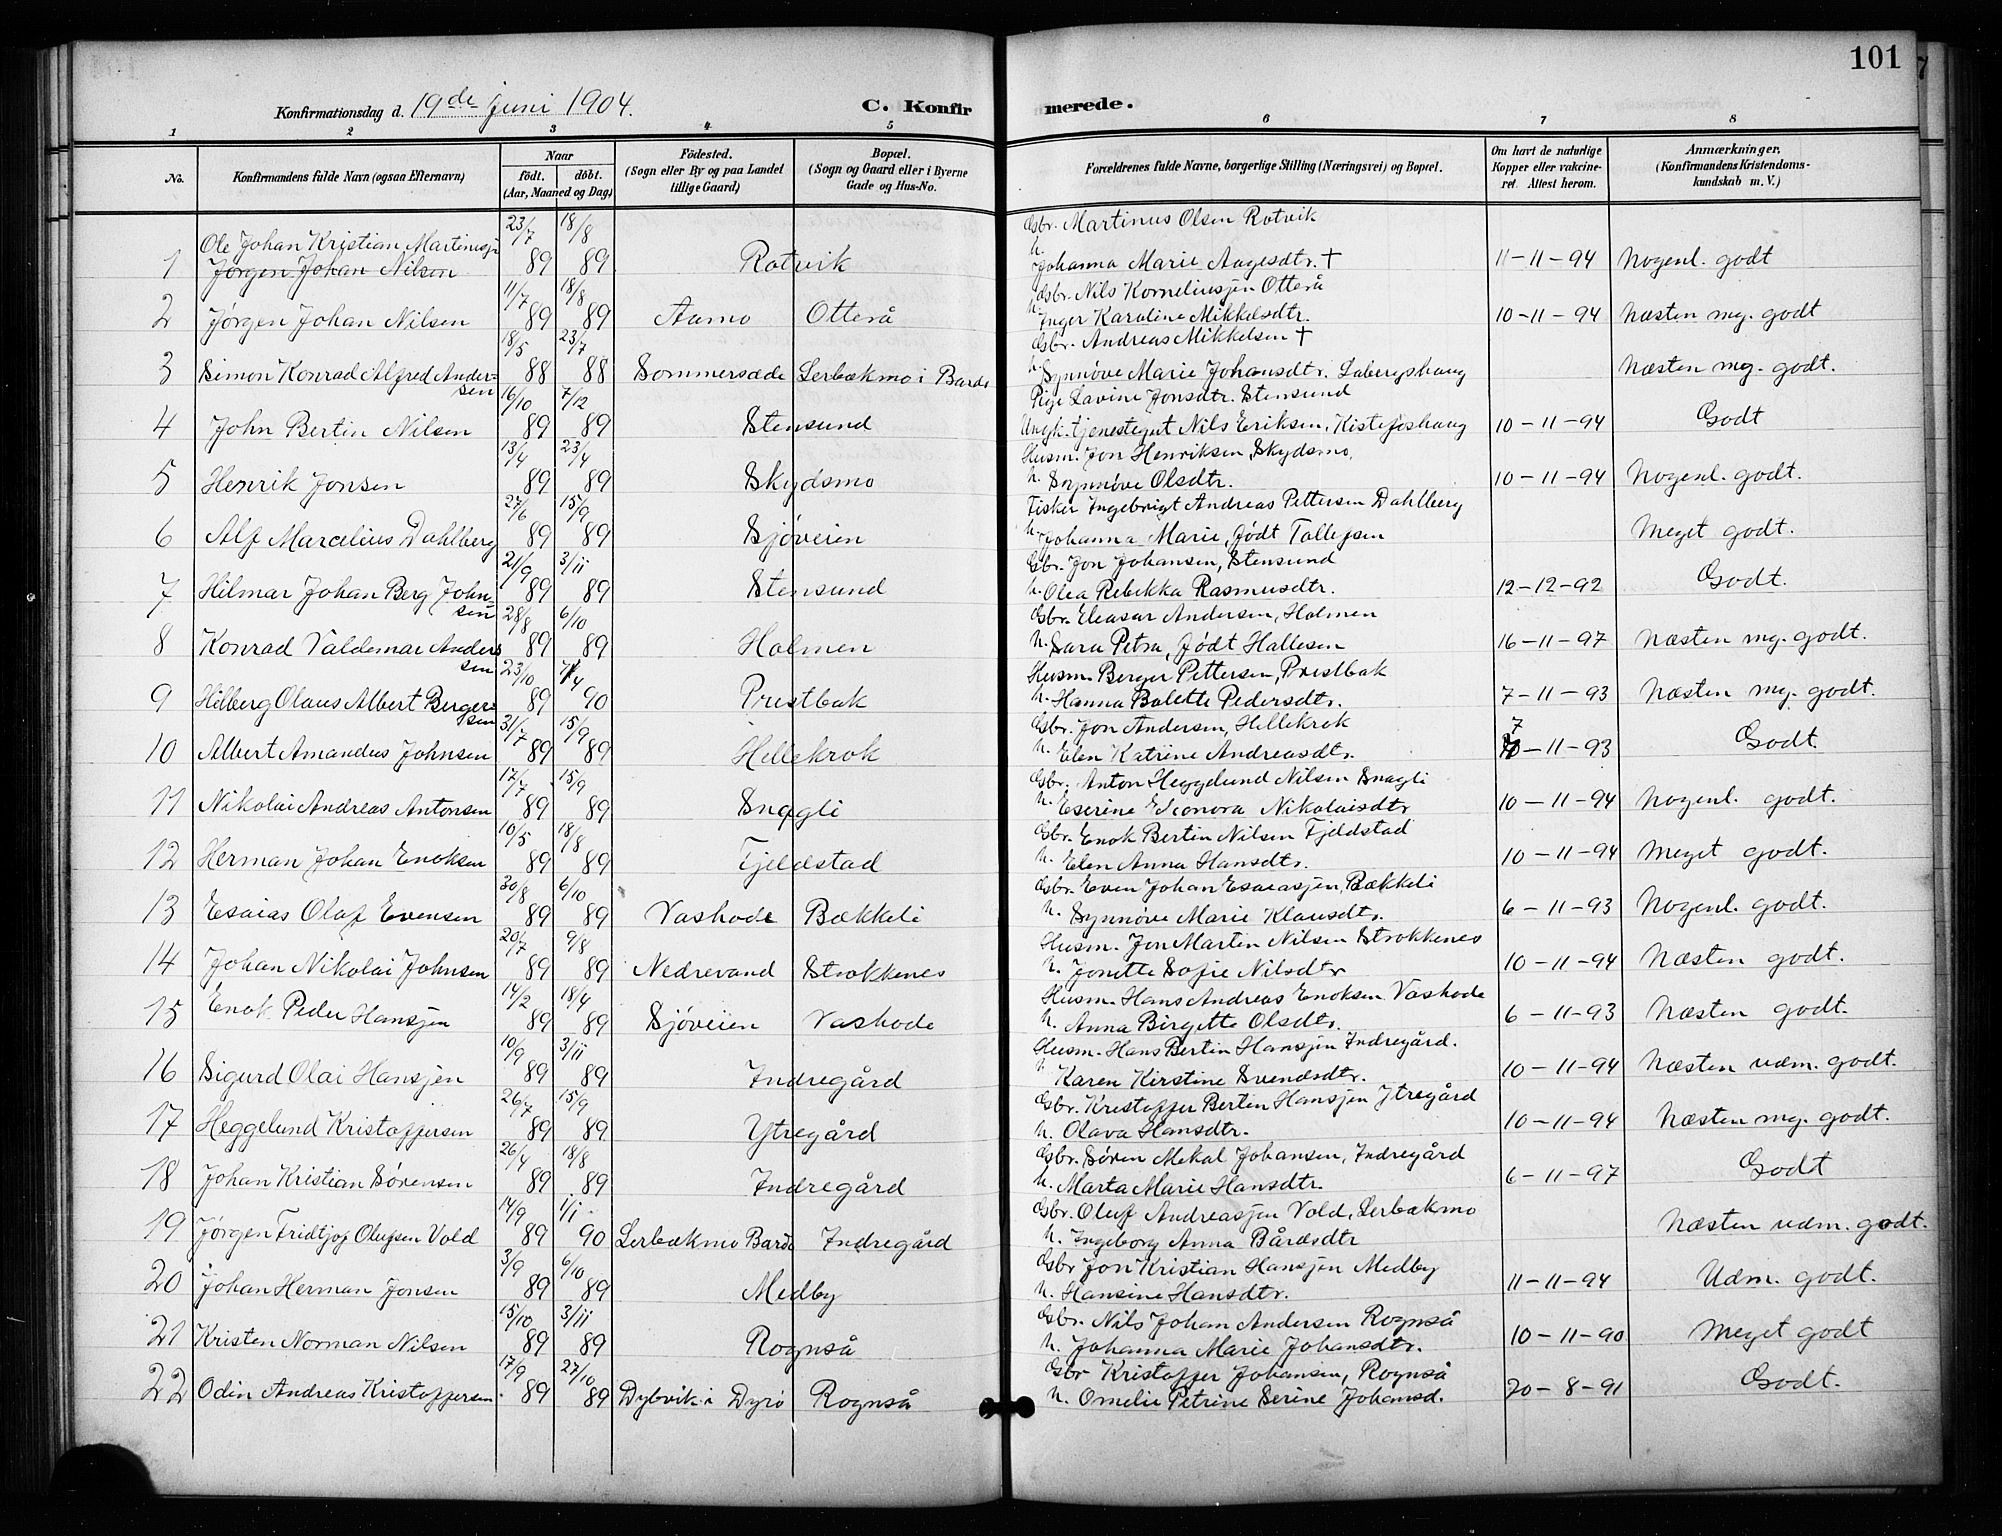 101
Konfirmationsdag d. 19de Juni 1904. C. Konfir merede.
1 2 3 4 5 6 7 8
No. Konfirmandens fulde Navn (ogsaa Efternavn) Naar födt. döbt. (Aar, Maaned og Dag) Födested. (Sogn eller By og paa Landet tillige Gaard) Bopæl. (Sogn og Gaard eller i Byerne Gade og Hus-No. Forældrenes fulde Navne, borgerlige Stilling (Næringsvei) og Bopæl. Om havt de naturlige Kopper eller vakcineret. Attest herom. Anmærkninger, (Konfirmandens Kristendomskundskab m. V.)
23/7 18/8 Gbr. Martinus Olsen Rotvik
Ole Johan Kristian Martinusjn
1 Jørgen Johan Nilsen 89 89 Rotvik h. Johanna Marie Aagesdtr. † 11-11-94 Nogenl. godt
11/7 18/8 Gbr. Nils Korneliusjen Otterå
2 Jørgen Johan Nilsen 89 89 Aamo Otterå h. Inger Karoline Mikkelsdtr. 10-11-94 Næsten mg. godt
18/5 23/7 Gbr. Andreas Mikkelsen †
3 Simon Konrad Alfred Ander= 88 88 Sommersæde Lerbækmo i Bardo h. Synnøve Marie Johansdtr. Labergshaug Næsten mg. godt.
sen 16/10 7/12 Pige Lavine Jonsdtr. Stensund
4 John Bertin Nilsen 89 89 Stensund Ungk. tjenestegut Nils Eriksen, Kistefoshaug 10-11-94 Godt
13/4 23/4 Husm. Jon Henriksen, Skydsmo,
5 Henrik Jonsen 89 89 Skydsmo h. Synnøve Olsdtr. 10-11-94 Nogenl. godt.
27/6 15/9 Fisker Ingebrigt Andreas Pettersen Dahlberg
6 Alf Marcelius Dahlberg 89 89 Sjøveien h. Johanna Marie, født Tollefsen Meget godt.
21/9 3/11 Gbr. Jon Johansen, Stensund
7 Hilmar Johan Berg John- 89 89 Stensund h. Olea Rebekka Rasmusdtr. 12-12-92 Godt.
sen 28/8 6/10 Gbr. Eleasar Andersen, Holmen
8 Konrad Valdemar Anders 89 89 Holmen h. Sara Petra, født Hallesen 16-11-97 Næsten mg. godt.
sen 23/10 7/4 Husm. Berger Pettersen, Prestbak
9 Hilberg Olaus Albert Berger= 89 90 Prestbak h. Hanna Bolette Pedersdtr. 7-11-93 Næsten mg. godt.
sen 31/7 15/9 Gbr. Jon Andersen, Hellekrok
10 Albert Amandus Johnsen 89 89 Hellekrok h. Elen Katrine Andreasdtr. 7-11-93 Godt.
17/7 15/9 Gbr. Anton Heggelund Nilsen Snøgli
11 Nikolai Andreas Antonsen 89 89 Snøgli h. Eserine Eleonora Nikolaisdtr 10-11-94 Nogenl. godt.
10/5 18/8 Gbr. Enok Bertin Nilsen Fjeldstad
12 Herman Johan Enoksen 89 89 Fjeldstad h. Elen Anna Hansdtr. 10-11-94 Meget godt.
30/8 6/10 Gbr. Even Johan Esaiasjen, Bækkeli
13 Esaias Olaf Evensen 89 89 Vashode Bækkeli h. Synnøve Marie Klausdtr. 6-11-93 Nogenl. godt.
20/7 9/8 Husm. Jon Martin Nilsen Strokkenes
14 Johan Nikolai Johnsen 89 89 Nedrevand Strokkenes h. Jonette Sofie Nilsdtr 10-11-94 Næsten godt.
14/2 18/4 Husm. Hans Andreas Enoksen Vashode
15 Enok Peder Hansjen 89 89 Sjøveien Vashode h. Anna Birgitte Olsdtr. 6-11-93 Næsten godt.
10/9 3/11 Husm. Hans Bertin Hansjen Indregård.
16 Sigurd Olai Hansjen 89 89 Indregård h. Karen Kirstine Svendsdtr. 10-11-94 Næsten udm. godt.
26/7 15/9 Gbr. Kristoffer Bertin Hansjen Ytregård
17 Heggelund Kristoffersen 89 89 Ytregård h. Olava Hansdtr. 10-11-94 Næsten mg. godt.
26/4 18/8 Gbr. Søren Mekal Johansen, Indregård
18 Johan Kristian Sørensen 89 89 Indregård h. Marta Marie Hansdtr. 6-11-97 Godt
14/9 1/1 Gbr. Oluf Andreasjen Vold, Lerbækmo
19 Jørgen Fridtjof Olufsen Vold 89 90 Lerbækmo Bardo Indregård h. Ingeborg Anna Bårdsdtr Næsten udm. godt.
3/9 6/10 Gbr Jon Kristian Hansjen Medby
20 Johan Herman Jonsen 89 89 Medby h. Hansine Hansdtr. 11-11-94 Udm. godt.
15/10 3/11 Gbr. Nils Johan Andersen Rognså
21 Kristen Norman Nilsen 89 89 Rognså h. Johanna Marie Johansdtr. 10-11-90 Meget godt
17/9 27/10 Gbr Kristoffer Johansen, Rognså
22 Odin Andreas Kristoffersen 89 89 Dybvik i Dyrø Rognså h. Omelie Petrine Serine Johansd. 20-8-91 Godt.